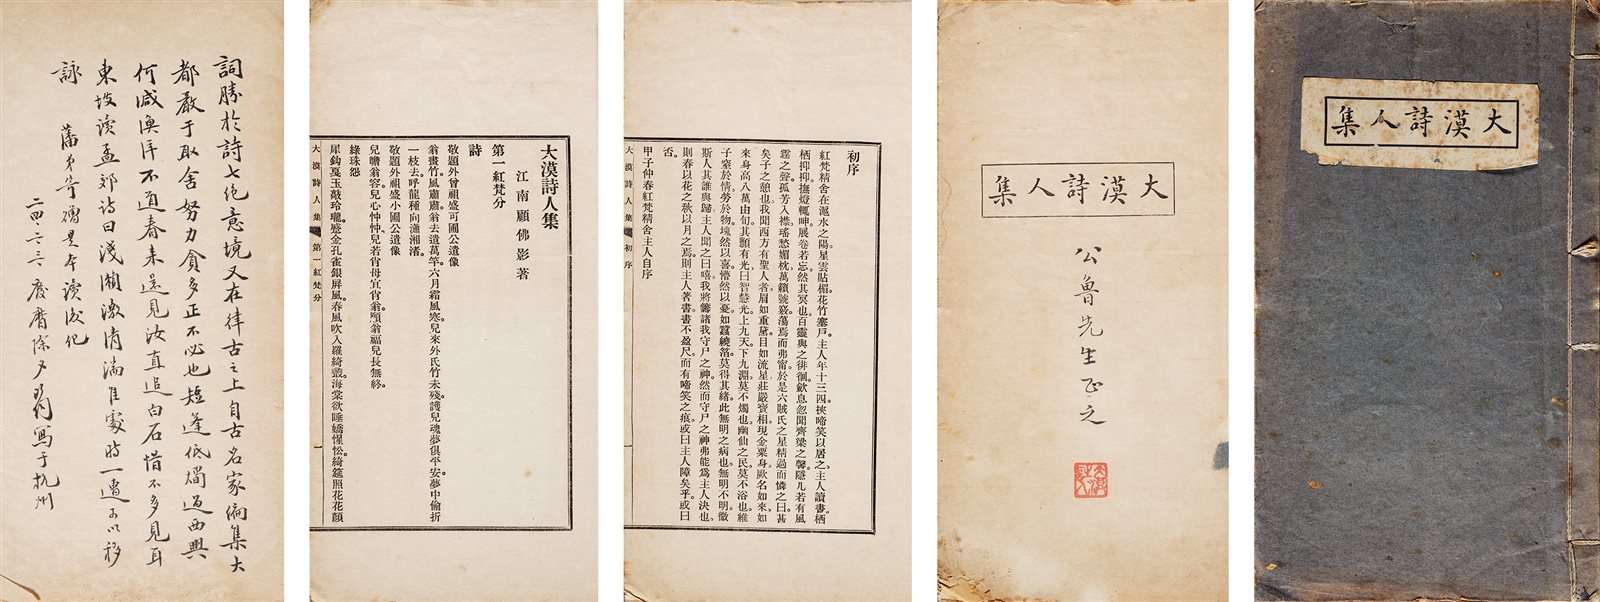 大漠詩人集
大漠詩人集
公魯先生正之
初序
紅梵精舍在滬水之陽。星雲貼楣。花竹塞戶。主人年十三四。挾啼笑以居之。主人讀書。栖
栖抑抑。撫燈輒呻。展卷若忘。然其冥也。百靈與之徘徊。歛息忽聞齊梁之馨。隱几若有風
霆之聲。孤芳入襟。瑤愁媚枕。萬籟號竅。蕩焉而弗甯。於是六賊氏之星精過而憐之曰。甚
矣子之憩也。我聞西方有聖人者。眉如重黛。目如流星。莊嚴寶相。現金粟身。厥名如來。如
來身高八萬由旬。其顥有光。曰智慧光。上九天。下九淵。莫不燭也。幽仙之民。莫不浴也。維
子窒於情。勞於物。塊然以喜。懵然以憂。如蠶繞箔。莫得其緒。此無明之病也。無明不明。微
斯人其誰與歸。主人聞之曰。嘻。我將籌諸我守尸之神。然而守尸之神弗能爲主人決也。
則春以花之。秋以月之。焉則主人著書。書不盈尺。而有啼笑之痕。或曰主人障矣乎。或曰
否。
甲子仲春紅梵精舍主人自序
大漠詩人集 初序
大漠詩人集
江南顧佛影著
第一紅梵分
詩
敬題外曾祖盛可圃公遺像
翁畫竹。風肅肅。翁去遺萬竿。六月霜風寒。兒來外氏竹未殘。護兒魂夢俱平安。夢中偷折
一枝去。呼龍種向瀟湘渚。
敬題外祖盛小圃公遺像
兒瞻翁容。兒心忡忡。兒若肖母宜肖翁。顒翁福兒長無終。
綠珠怨
犀鈎戛玉敲玲瓏。蹙金孔雀銀屏風。春風吹入羅綺叢。海棠欲睡嬌惺忪。綺筵照花花顏
大漠詩人集 第一紅梵分 一
詞勝於詩七絕意境又在律古之上自古名家徧集大
都嚴于取舍努力貪多正不必也短蓬低燭過西興
何減漁洋不道春來還見汝直追白石惜不多見耳
東坡讀孟郊詩曰淺瀨激清湍佳處時一遭可以移
詠
二四六三三廢曆除夕 寫于杭州